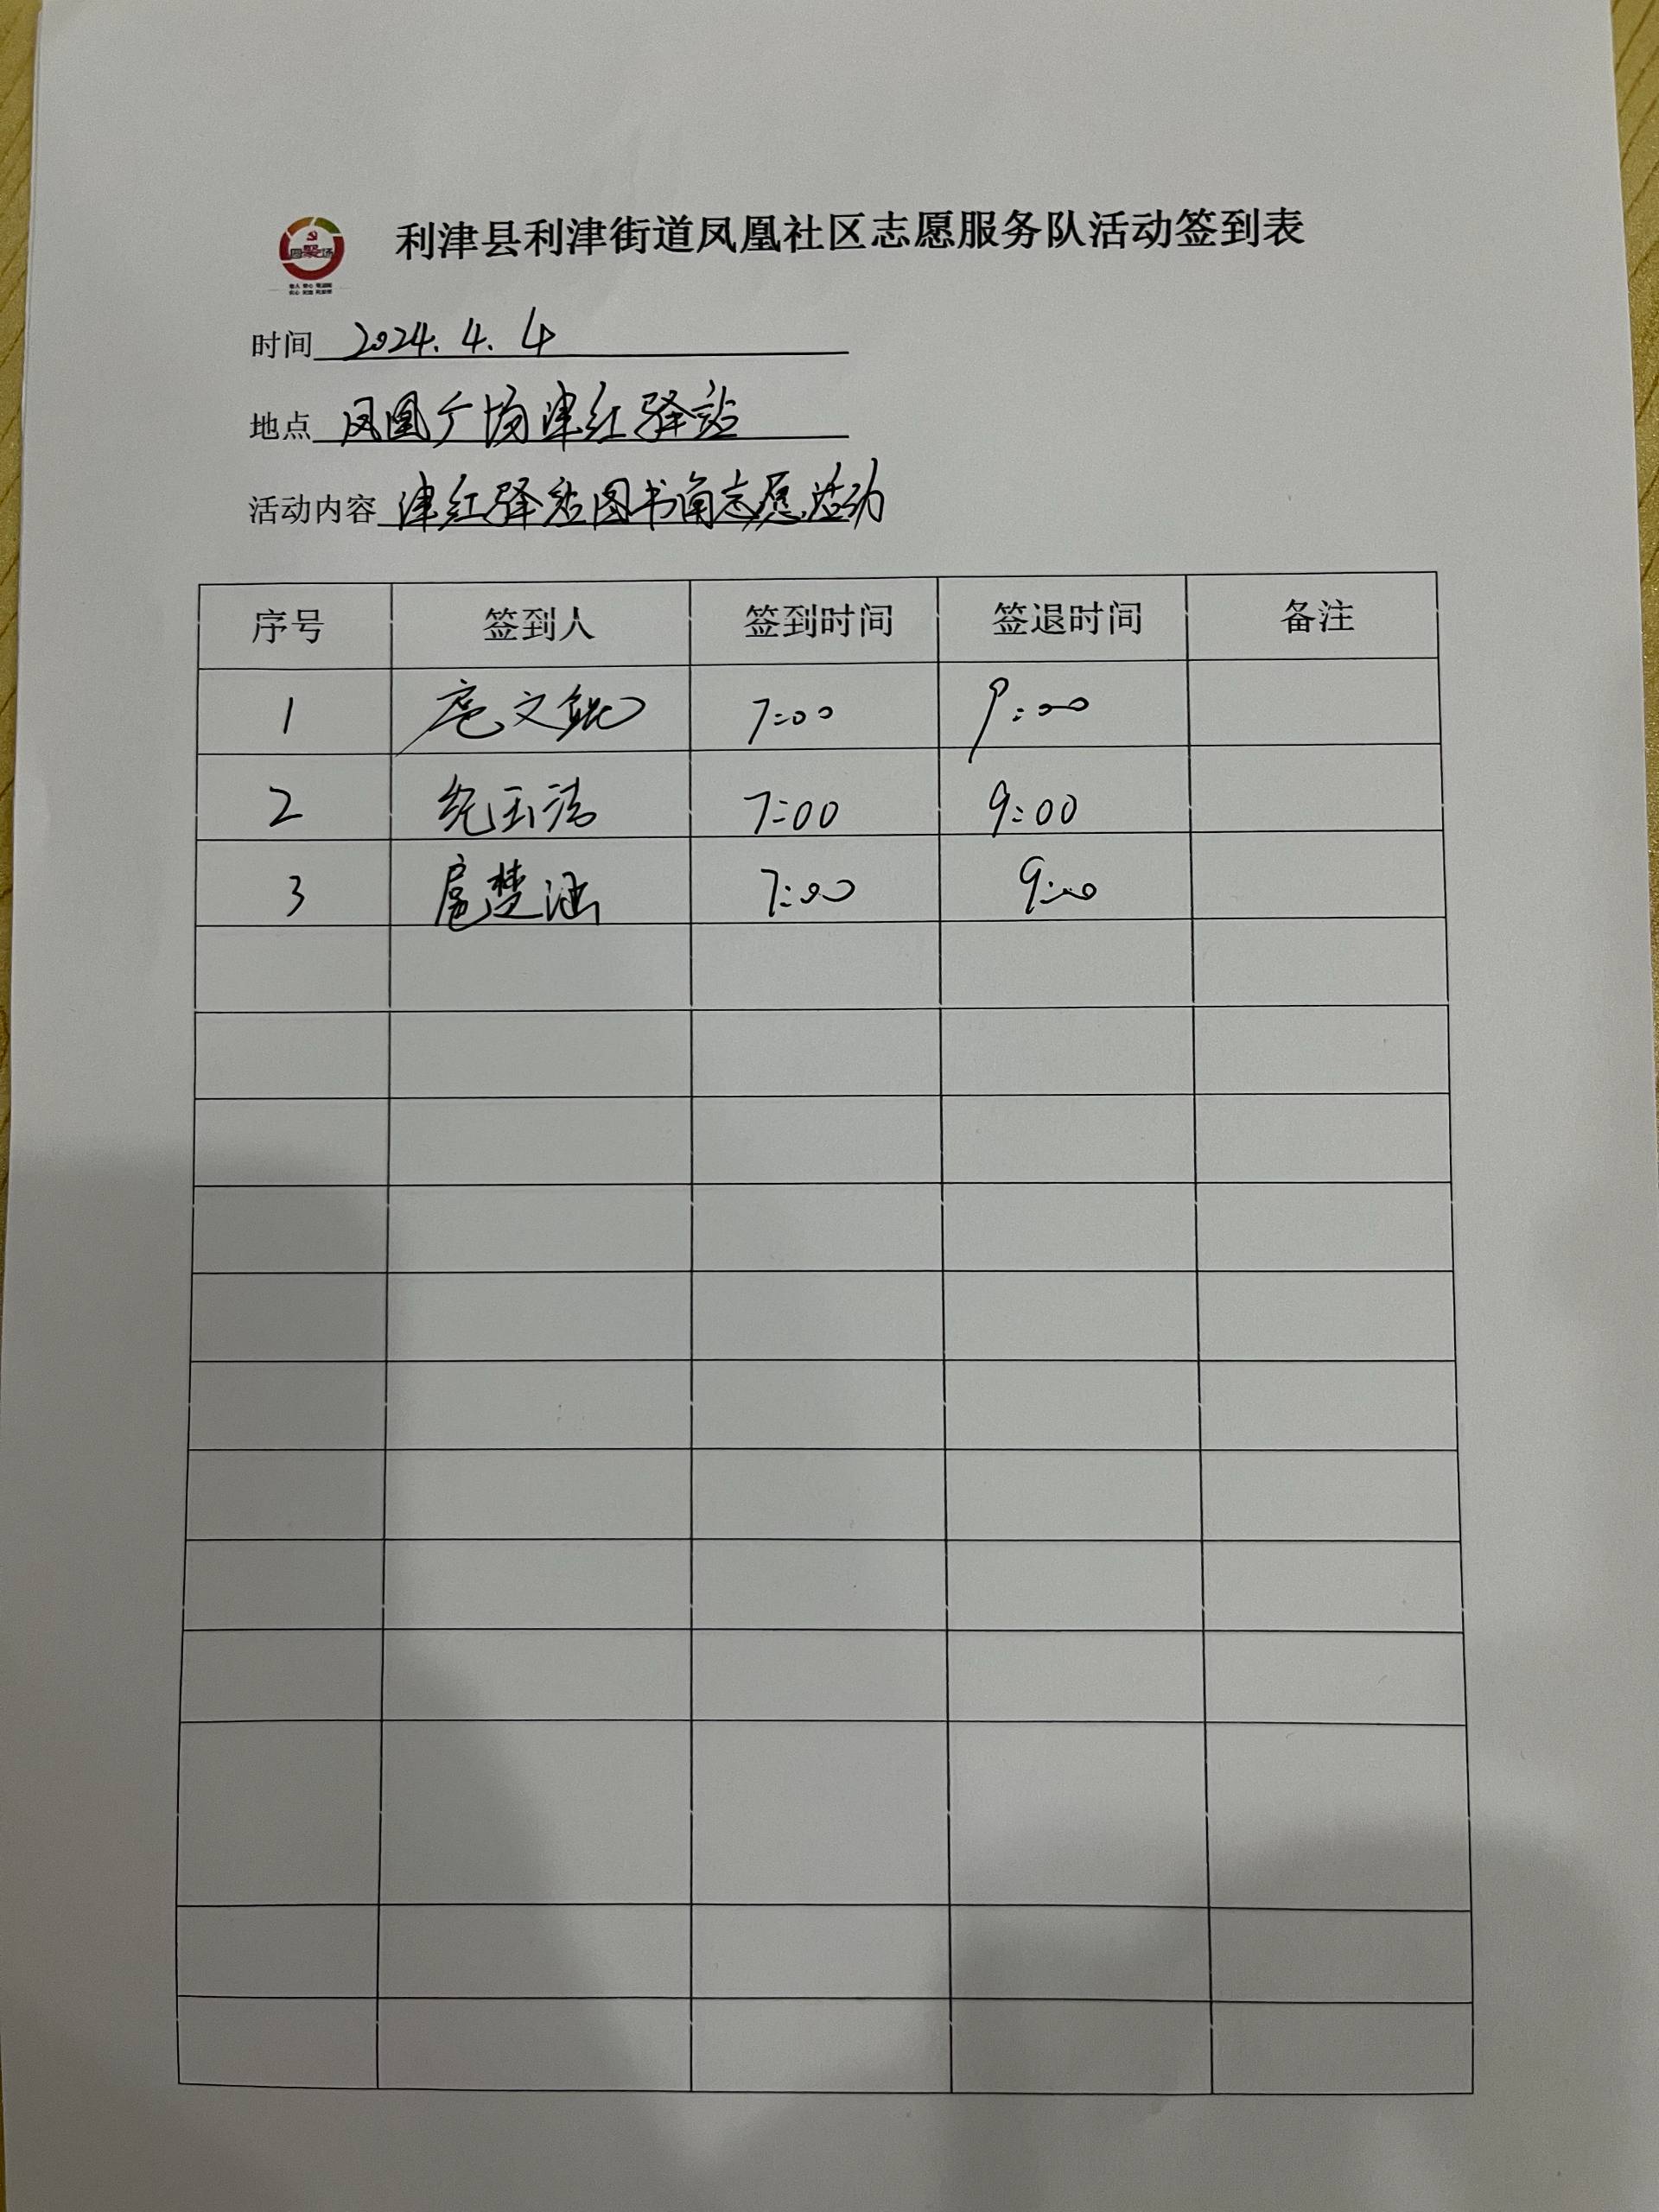 利津县利津街道凤凰社区志愿服务队活动签到表
时间 2024.4.4
地点 凤凰广场津红驿站
活动内容 津红驿站图书角志愿活动
序号 签到人 签到时间 签退时间 备注
1 扈文 7:00 9:00
2 纪玉洁 7:00 9:00
3 扈楚涵 7:00 9:00